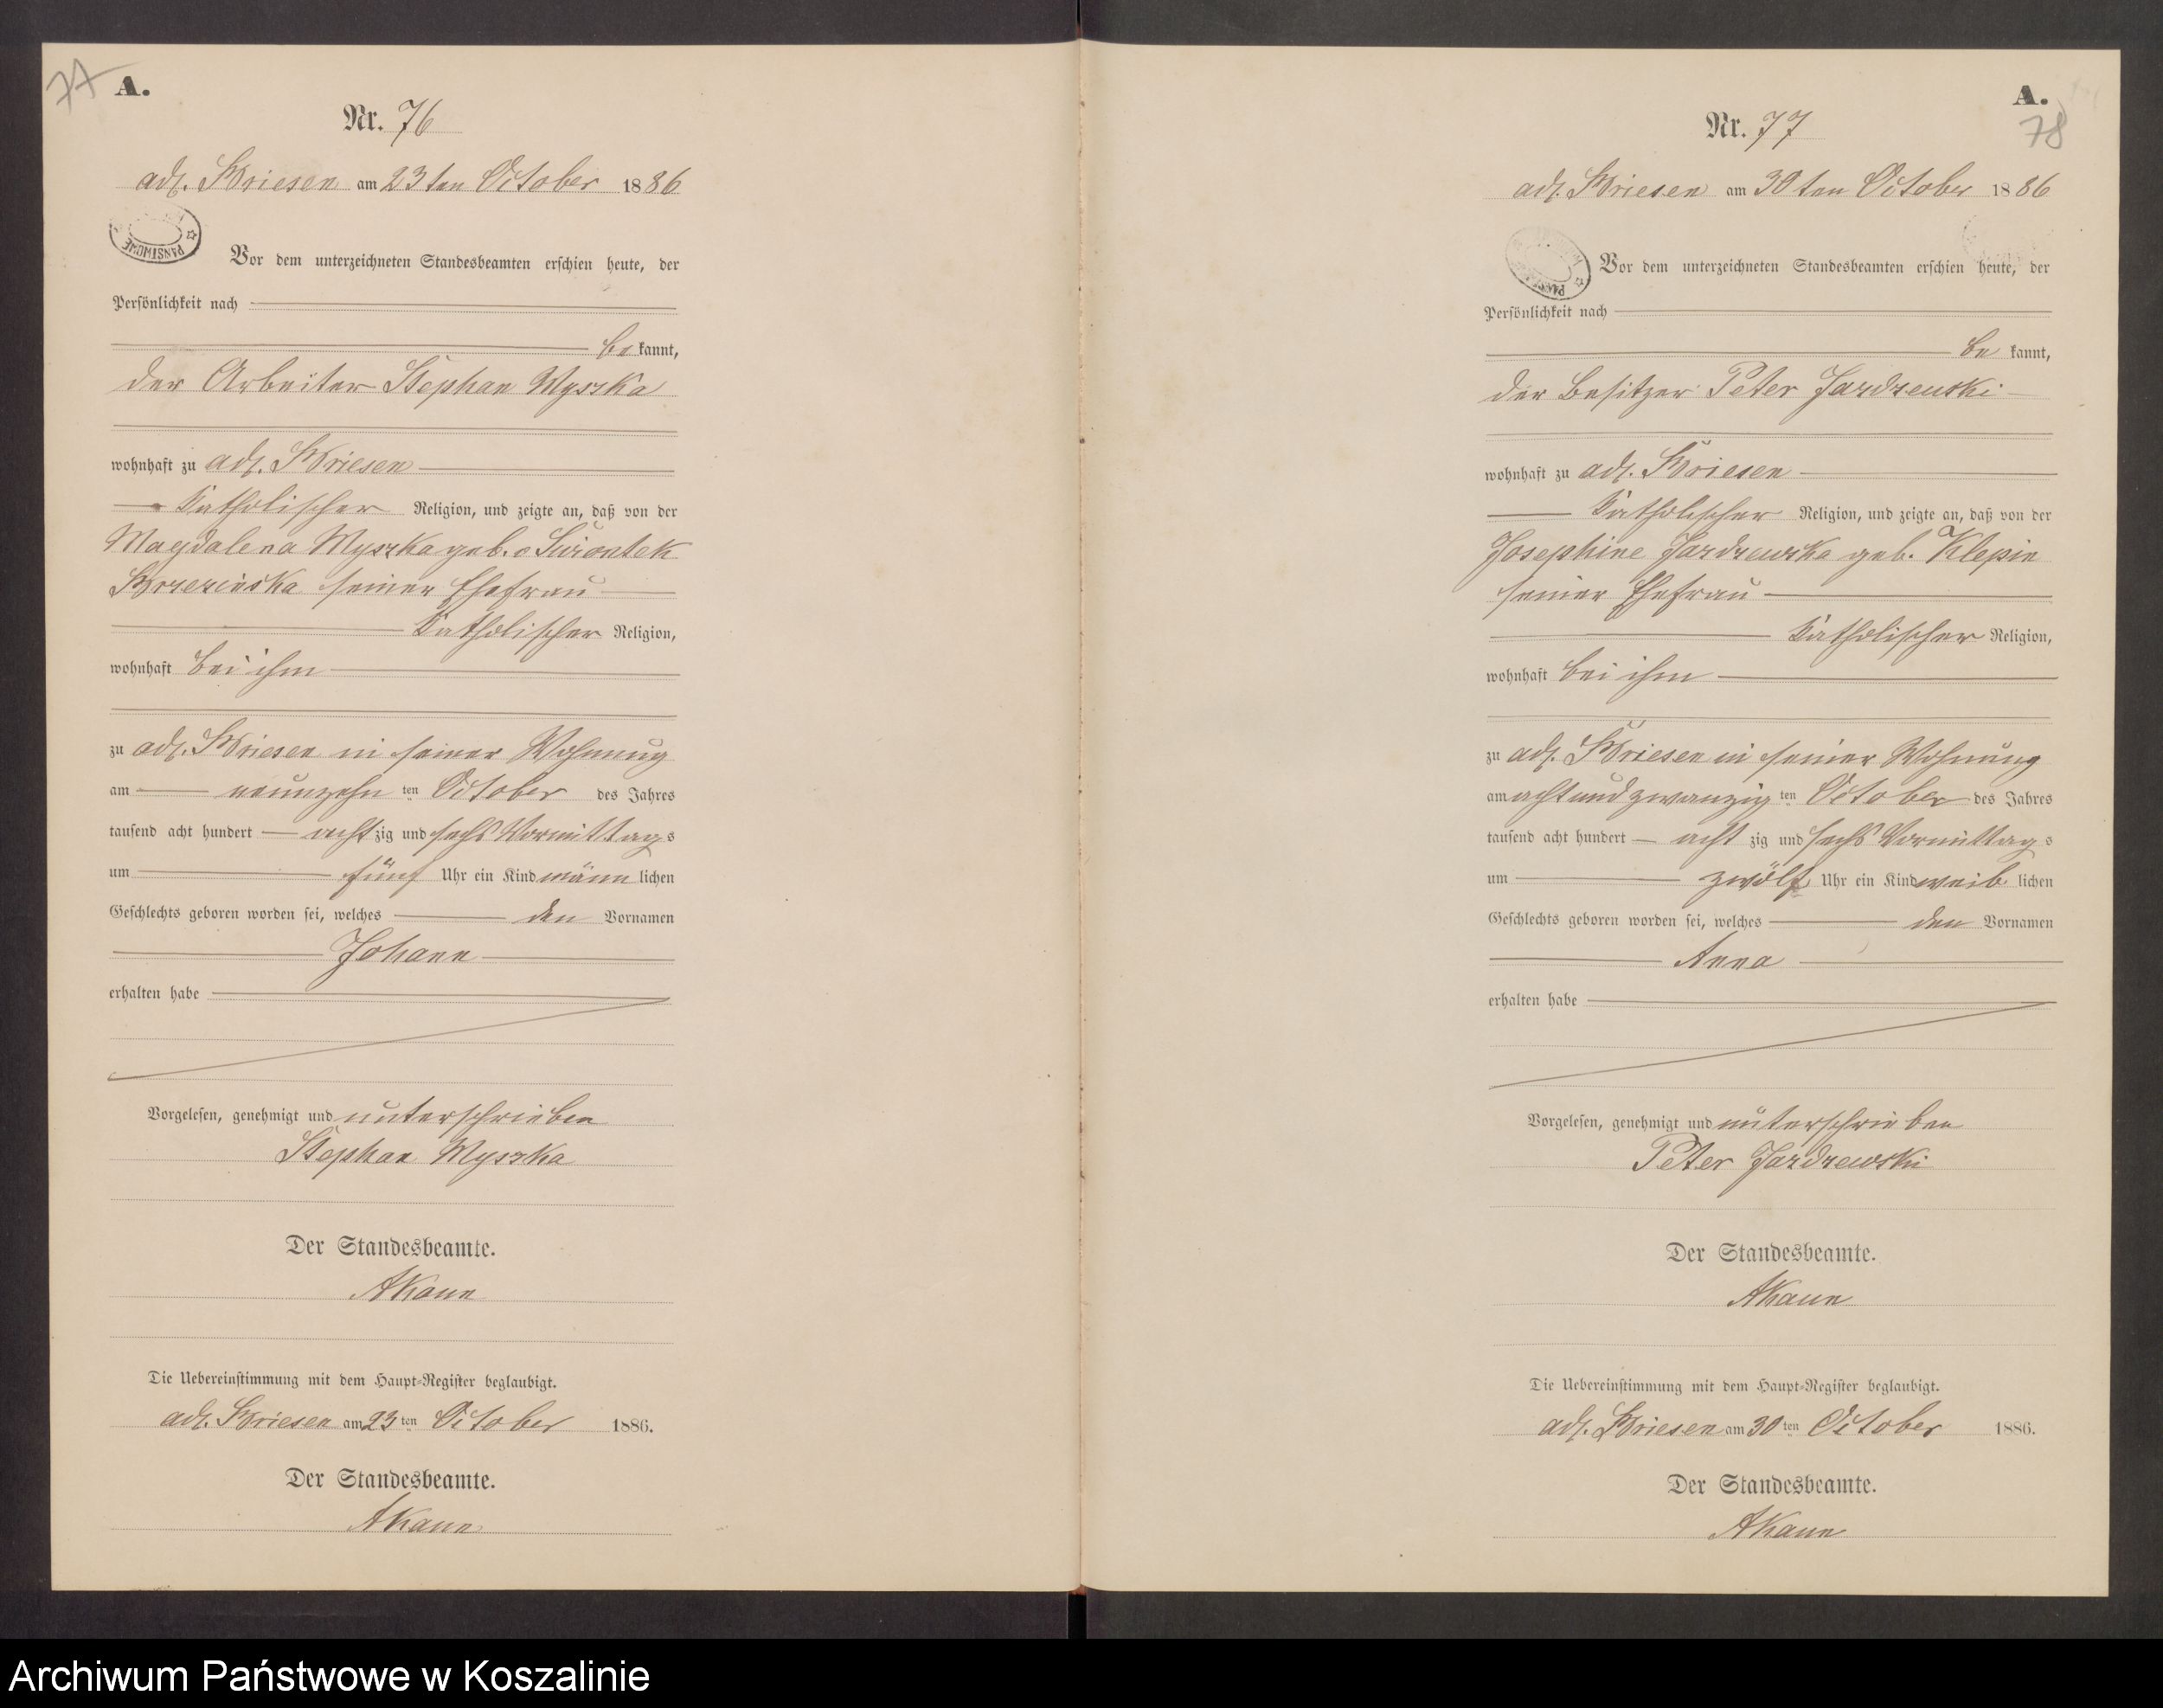 77
A.
Nr. 76
adl. Briesen am 23ten October 1886
Vor dem unterzeichneten Standesbeamten erschien heute, der
Persönlichkeit nach
bekannt,
der Arbeiter Stephan Myszka
wohnhaft zu adl. Briesen
katholischer Religion, und zeigte an, daß von der
Magdalena Myszka geb.
Brzezinska seiner Ehefrau
katholischer Religion,
wohnhaft bei ihm
zu adl. Briesen in seiner Wohnung
am neunzehn ten October des Jahres
tausend acht hundert acht zig und sechs Vormittags
um fünf Uhr ein Kind männlichen
Geschlechts geboren worden sei, welches den Vornamen
Johann
erhalten habe
Vorgelesen, genehmigt und unterschrieben
Stephan Myszka
Der Standesbeamte.
AKaun
Die Uebereinstimmung mit dem Haupt-Register beglaubigt.
adl. Briesen am 23ten October 1886.
Der Standesbeamte.
AKaun
A.
78
Nr. 77
adl. Briesen am 30ten October 1886
Vor dem unterzeichneten Standesbeamten erschien heute, der
Persönlichkeit nach
be kannt,
der Besitzer Peter Jazdzewski
wohnhaft zu adl. Briesen
katholischer Religion, und zeigte an, daß von der
Josephine Jazdzewska geb. Klepin
seiner Ehefrau
katholischer Religion,
wohnhaft bei ihm
zu adl. Briesen in seiner Wohnung
am achtundzwanzig ten October des Jahres
tausend acht hundert acht zig und sechs Vormittags
um zwölf Uhr ein Kind weib lichen
Geschlechts geboren worden sei, welches den Vornamen
Anna
erhalten habe
Vorgelesen, genehmigt und unterschrieben
Peter Jazdzewski
Der Standesbeamte.
AKaun
Die Uebereinstimmung mit dem Haupt-Register beglaubigt.
adl. Briesen am 30ten October 1886.
Der Standesbeamte.
AKaun
Archiwum Państwowe w Koszalinie